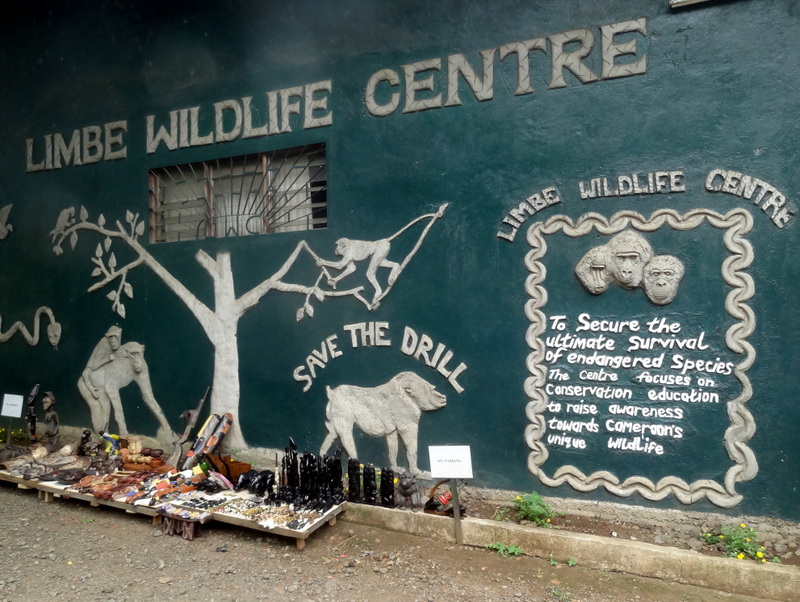 LIMBE WILDLIFE CENTRE
LIMBE WILDLIFE CENTRE
SAVE THE DRILL
To Secure the
ultimate survival
of endangered Species
The centre focuses on
Conservation education
to raise awareness
towards Cameroon's
unique Wildlife
NO PARKING